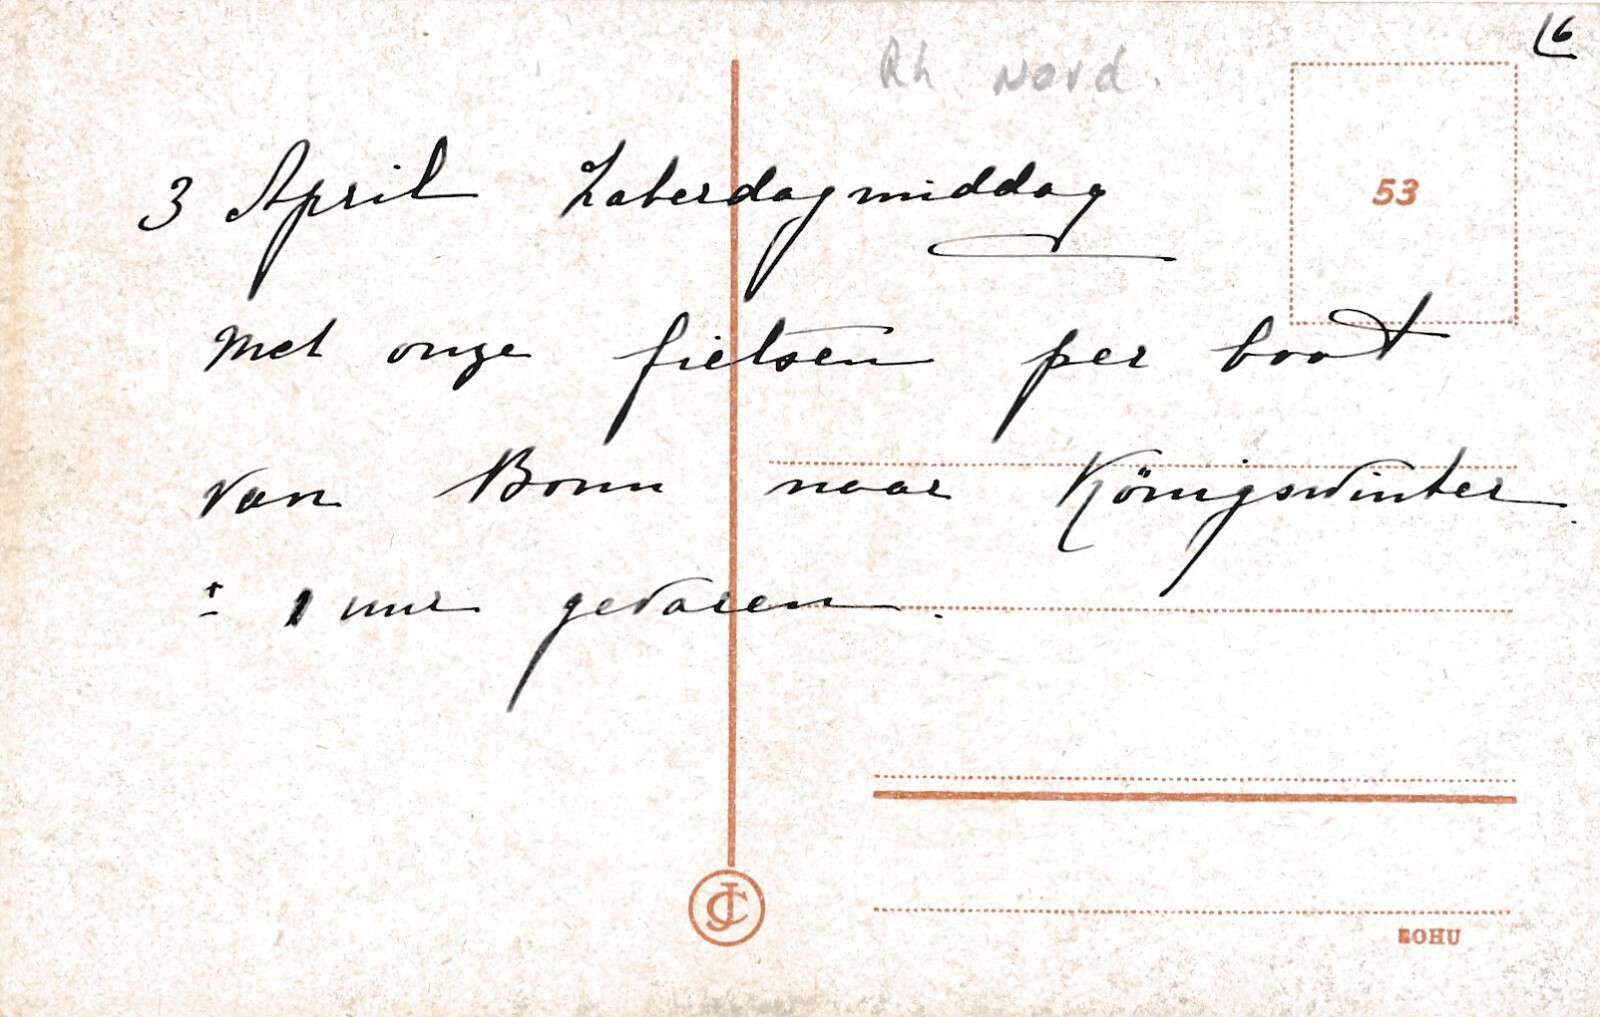 6
Rh. Nord.
53
3 April Zaterdagmiddag
met onze fietsen per boot
van Bonn naar Königswinter.
± 1 uur gevaren.
JC
ROHU